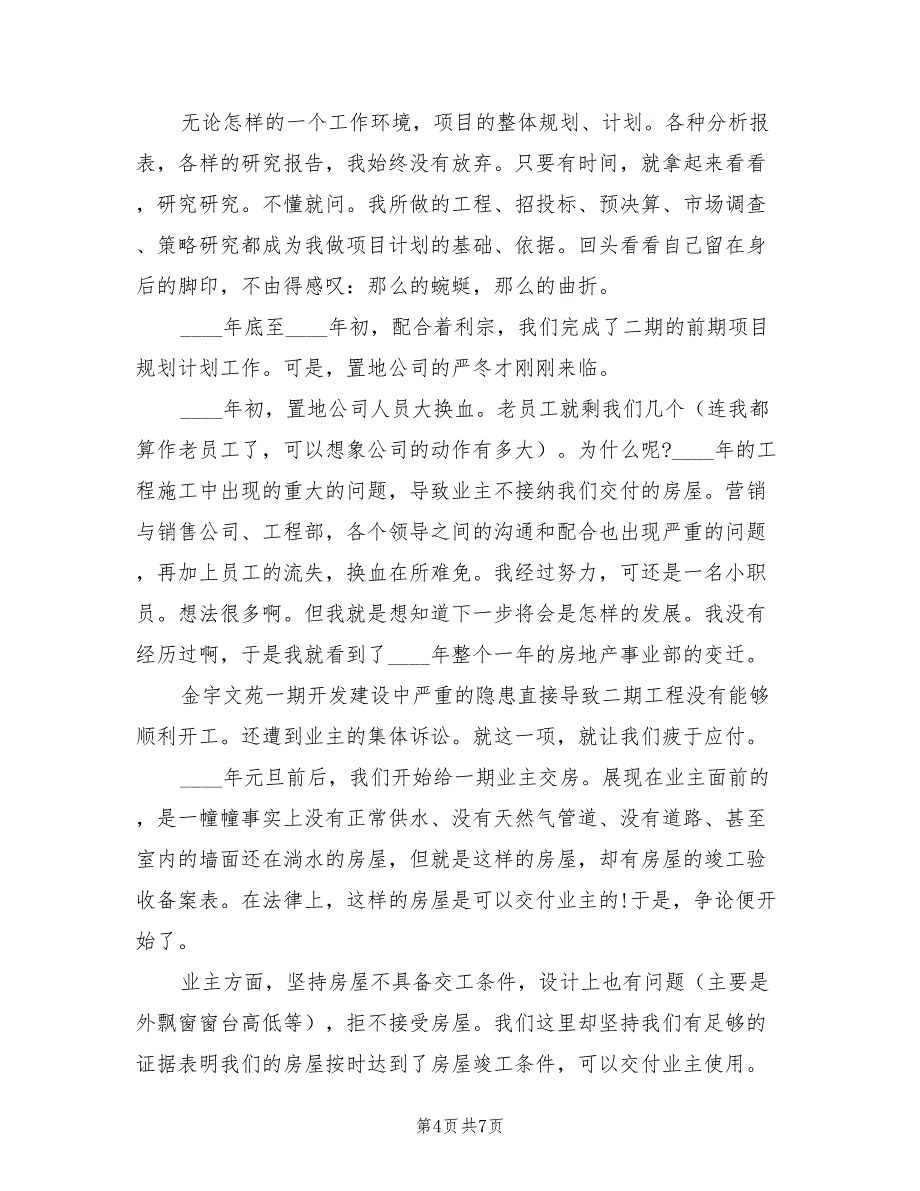 无论怎样的一个工作环境，项目的整体规划、计划。各种分析报
表，各样的研究报告，我始终没有放弃。只要有时间，就拿起来看看
，研究研究。不懂就问。我所做的工程、招投标、预决算、市场调查
、策略研究都成为我做项目计划的基础、依据。回头看看自己留在身
后的脚印，不由得感叹：那么的蜿蜒，那么的曲折。
____年底至____年初，配合着利宗，我们完成了二期的前期项目
规划计划工作。可是，置地公司的严冬才刚刚来临。
____年初，置地公司人员大换血。老员工就剩我们几个（连我都
算作老员工了，可以想象公司的动作有多大）。为什么呢?____年的工
程施工中出现的重大的问题，导致业主不接纳我们交付的房屋。营销
与销售公司、工程部，各个领导之间的沟通和配合也出现严重的问题
，再加上员工的流失，换血在所难免。我经过努力，可还是一名小职
员。想法很多啊。但我就是想知道下一步将会是怎样的发展。我没有
经历过啊，于是我就看到了____年整个一年的房地产事业部的变迁。
金宇文苑一期开发建设中严重的隐患直接导致二期工程没有能够
顺利开工。还遭到业主的集体诉讼。就这一项，就让我们疲于应付。
____年元旦前后，我们开始给一期业主交房。展现在业主面前的
，是一幢幢事实上没有正常供水、没有天然气管道、没有道路、甚至
室内的墙面还在淌水的房屋，但就是这样的房屋，却有房屋的竣工验
收备案表。在法律上，这样的房屋是可以交付业主的!于是，争论便开
始了。
业主方面，坚持房屋不具备交工条件，设计上也有问题（主要是
外飘窗窗台高低等），拒不接受房屋。我们这里却坚持我们有足够的
证据表明我们的房屋按时达到了房屋竣工条件，可以交付业主使用。
第4页共7页